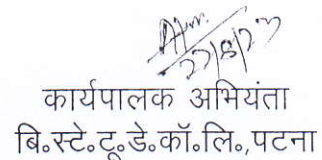 27/8/23
कार्यपालक अभियंता
बि॰स्टे॰टू॰डे॰कॉ॰लि॰,पटना